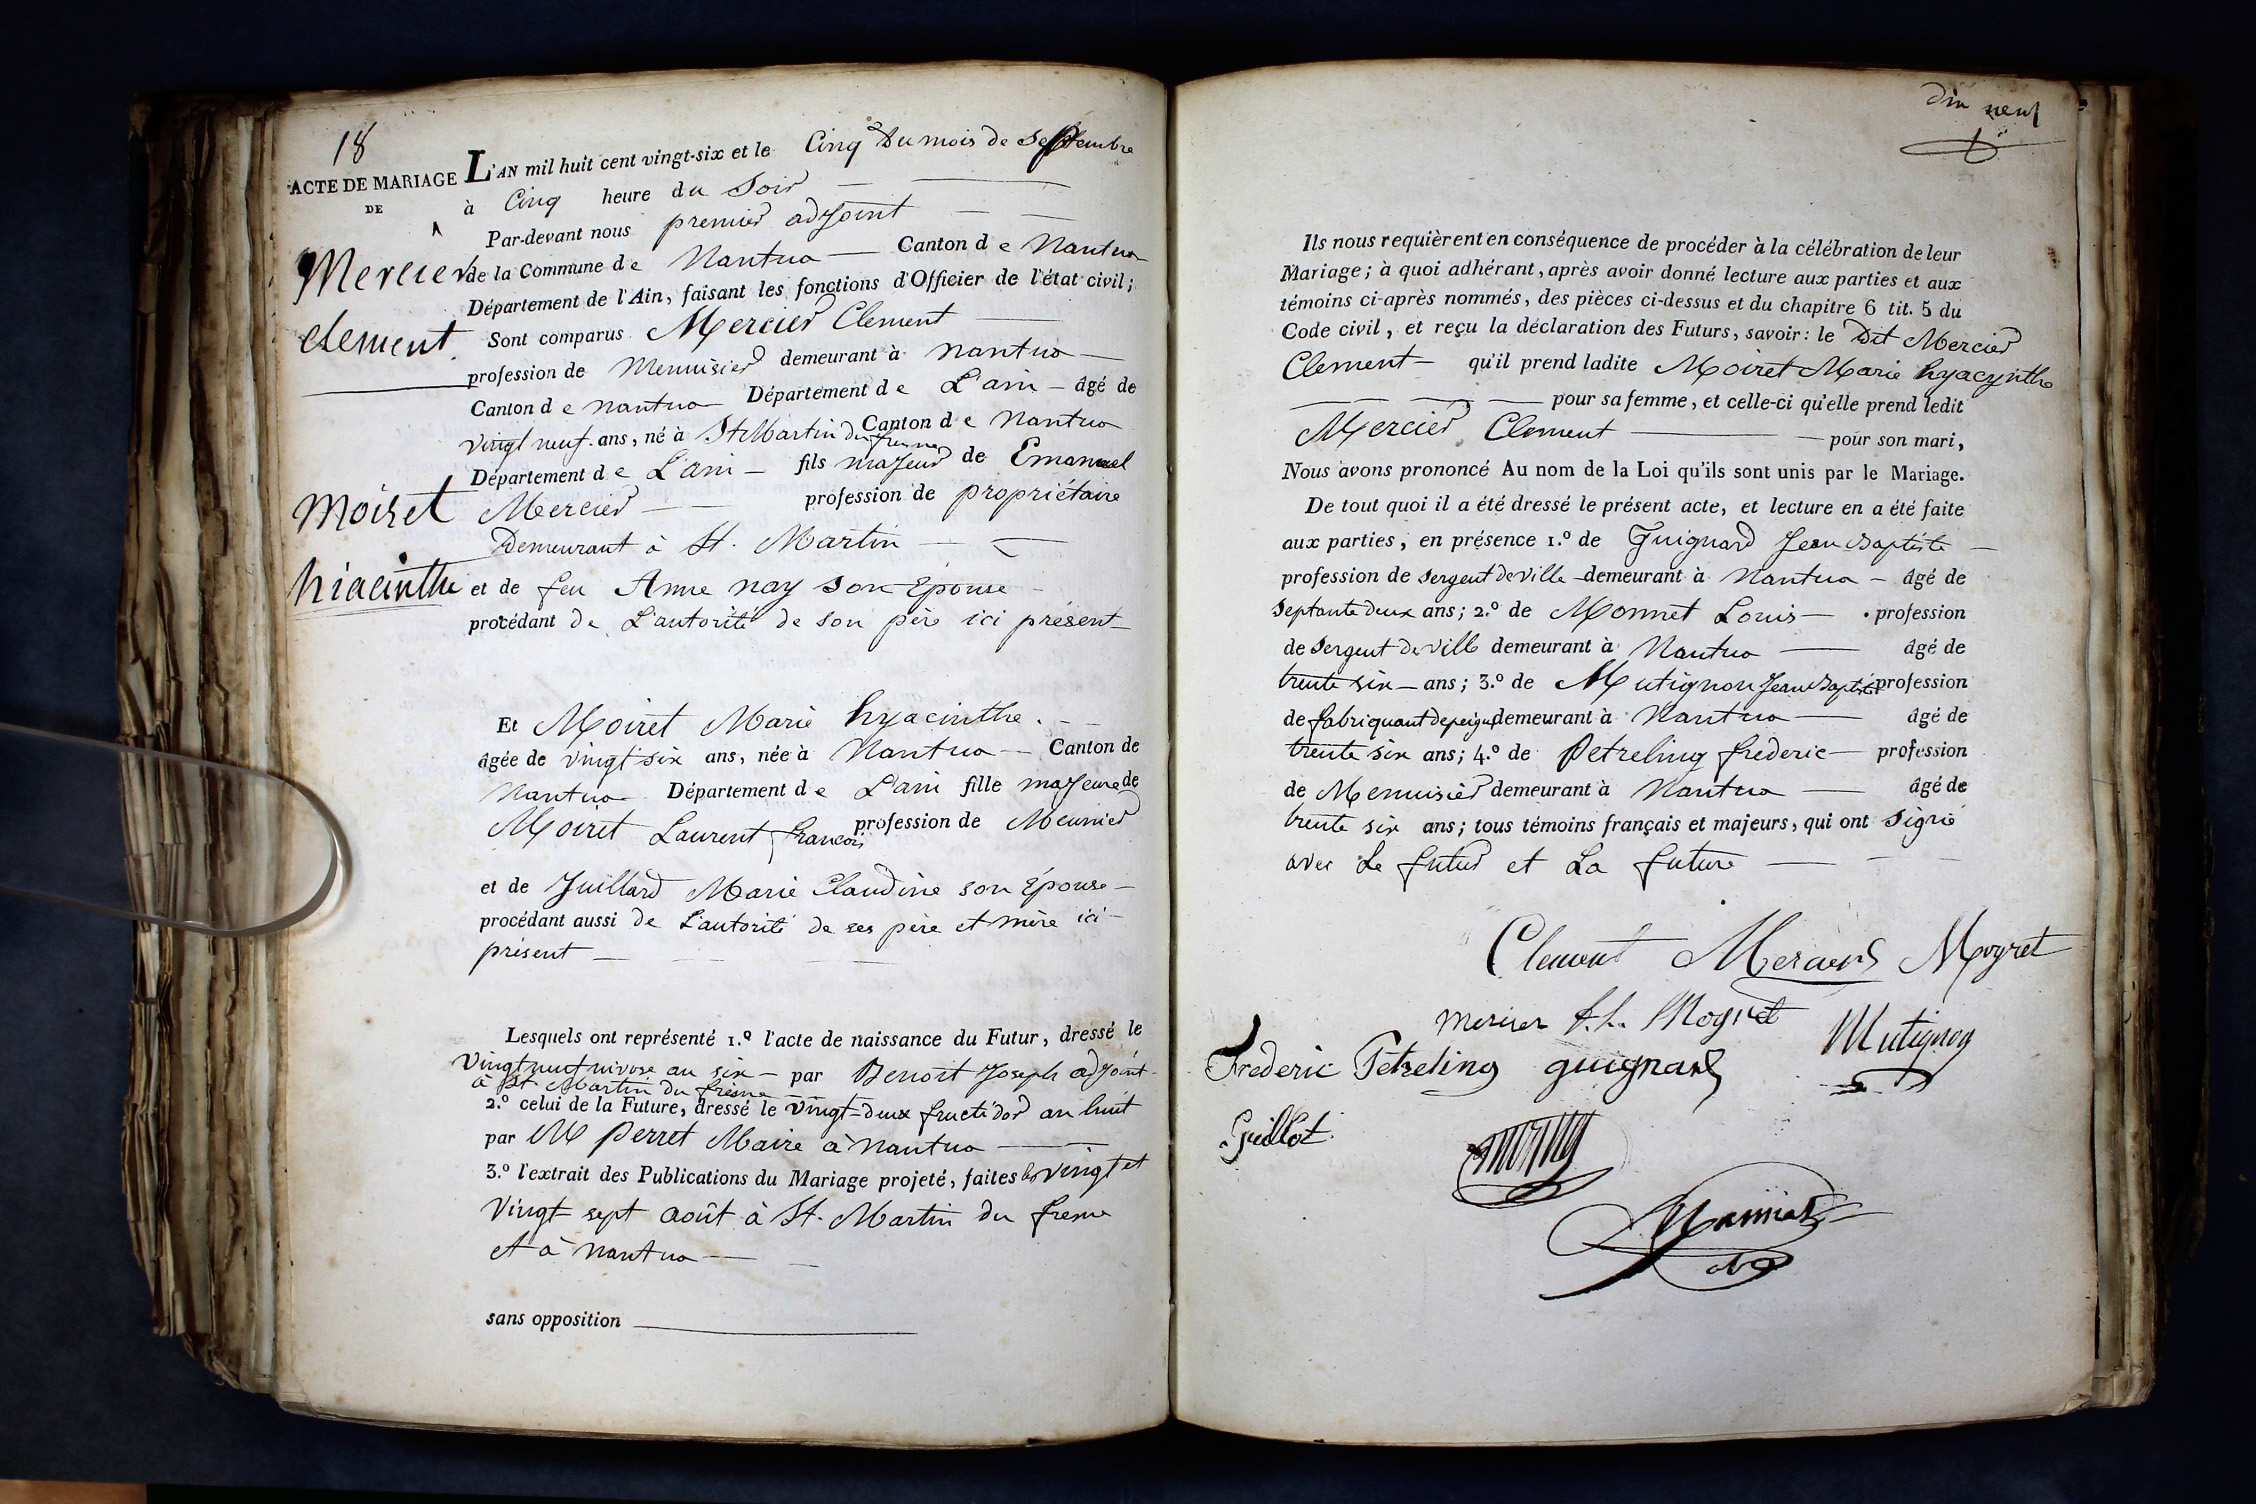 18
ACTE DE MARIAGE
DE
Mercier
clement
Moiret
hiacinthe
L'AN mil huit cent vingt-six et le Cinq Du mois de Septembre
à Cinq heure du Soir
Par-devant nous premier adjoint
de la Commune de Nantua Canton de Nantua
Département de l'Ain, faisant les fonctions d'Officier de l'état civil;
Sont comparus Mercier Clement
profession de Menuisier demeurant à nantua
Canton de nantua Département de L'ain âgé de
vingt neuf ans, né à St Martin du fresne Canton de Nantua
Département de L'ain fils majeur de Emanuel
Mercier profession de propriétaire
Demeurant à St. Martin
et de feu Anne nay son Epouse
procédant de L'autorité de son père ici présent
Et Moiret Marie hyacinthe.
âgée de vingt six ans, née à Nantua Canton de
Nantua Département de L'ain fille majeure de
Moiret Laurent francois profession de Meunier
et de Juillard Marie Claudine son Épouse
procédant aussi de L'autorité de ses père et mère ici
présent
Lesquels ont représenté 1.º l'acte de naissance du Futur, dressé le
Vingt neuf nivose an six par Benoit Joseph adjoint
à St Martin du fresne
2.º celui de la Future, dressé le vingt-deux fructidor an huit
par M Perret Maire à nantua
3.º l'extrait des Publications du Mariage projeté, faites les vingt et
Vingt-sept août à St. Martin du fresne
et à nantua
sans opposition
dix neuf
Ils nous requièrent en conséquence de procéder à la célébration de leur
Mariage; à quoi adhérant, après avoir donné lecture aux parties et aux
témoins ci-après nommés, des pièces ci-dessus et du chapitre 6 tit. 5 du
Code civil, et reçu la déclaration des Futurs, savoir: le Dit Mercier
Clement qu'il prend ladite Moiret Marie hyacynthe
pour sa femme, et celle-ci qu'elle prend ledit
Mercier Clement pour son mari,
Nous avons prononcé Au nom de la Loi qu'ils sont unis par le Mariage.
De tout quoi il a été dressé le présent acte, et lecture en a été faite
aux parties, en présence 1.º de Guignard Jean Baptiste
profession de sergent de ville demeurant à Nantua âgé de
septante deux ans; 2.º de Monnet Louis profession
de sergent de ville demeurant à Nantua âgé de
trente six ans; 3.º de Mutignon Jean Baptiste profession
de fabriquant de peignes demeurant à Nantua âgé de
trente six ans; 4.º de Petreling frederic profession
de Menuisier demeurant à Nantua âgé de
trente six ans; tous témoins français et majeurs, qui ont signé
avec Le futur et La future
Clement Mercier Moyret
mercier Moyret Mutignon
Frederic Petreling guignard
Guillot